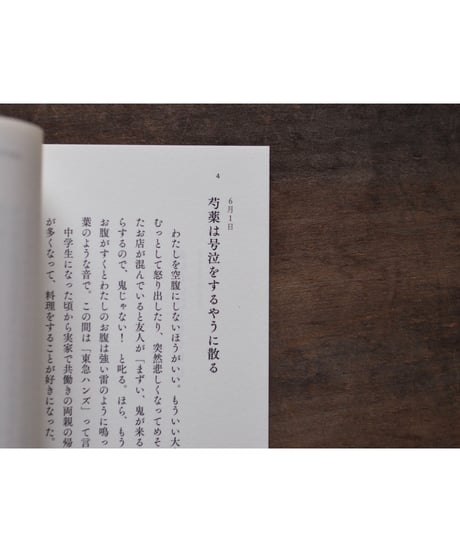 4
6月1日
芍薬は号泣をするやうに散る
わたしを空腹にしないほうがいい。もういい大
むっとして怒り出したり、突然悲しくなってめそ
たお店が混んでいると友人が「まずい、鬼が来る
らするので、鬼じゃない! と叱る。ほら、もう
お腹がすくとわたしのお腹は強い雷のように鳴っ
葉のような音で。この間は「東急ハンズ」って言
中学生になった頃から実家で共働きの両親の帰
が多くなって、料理をすることが好きになった。